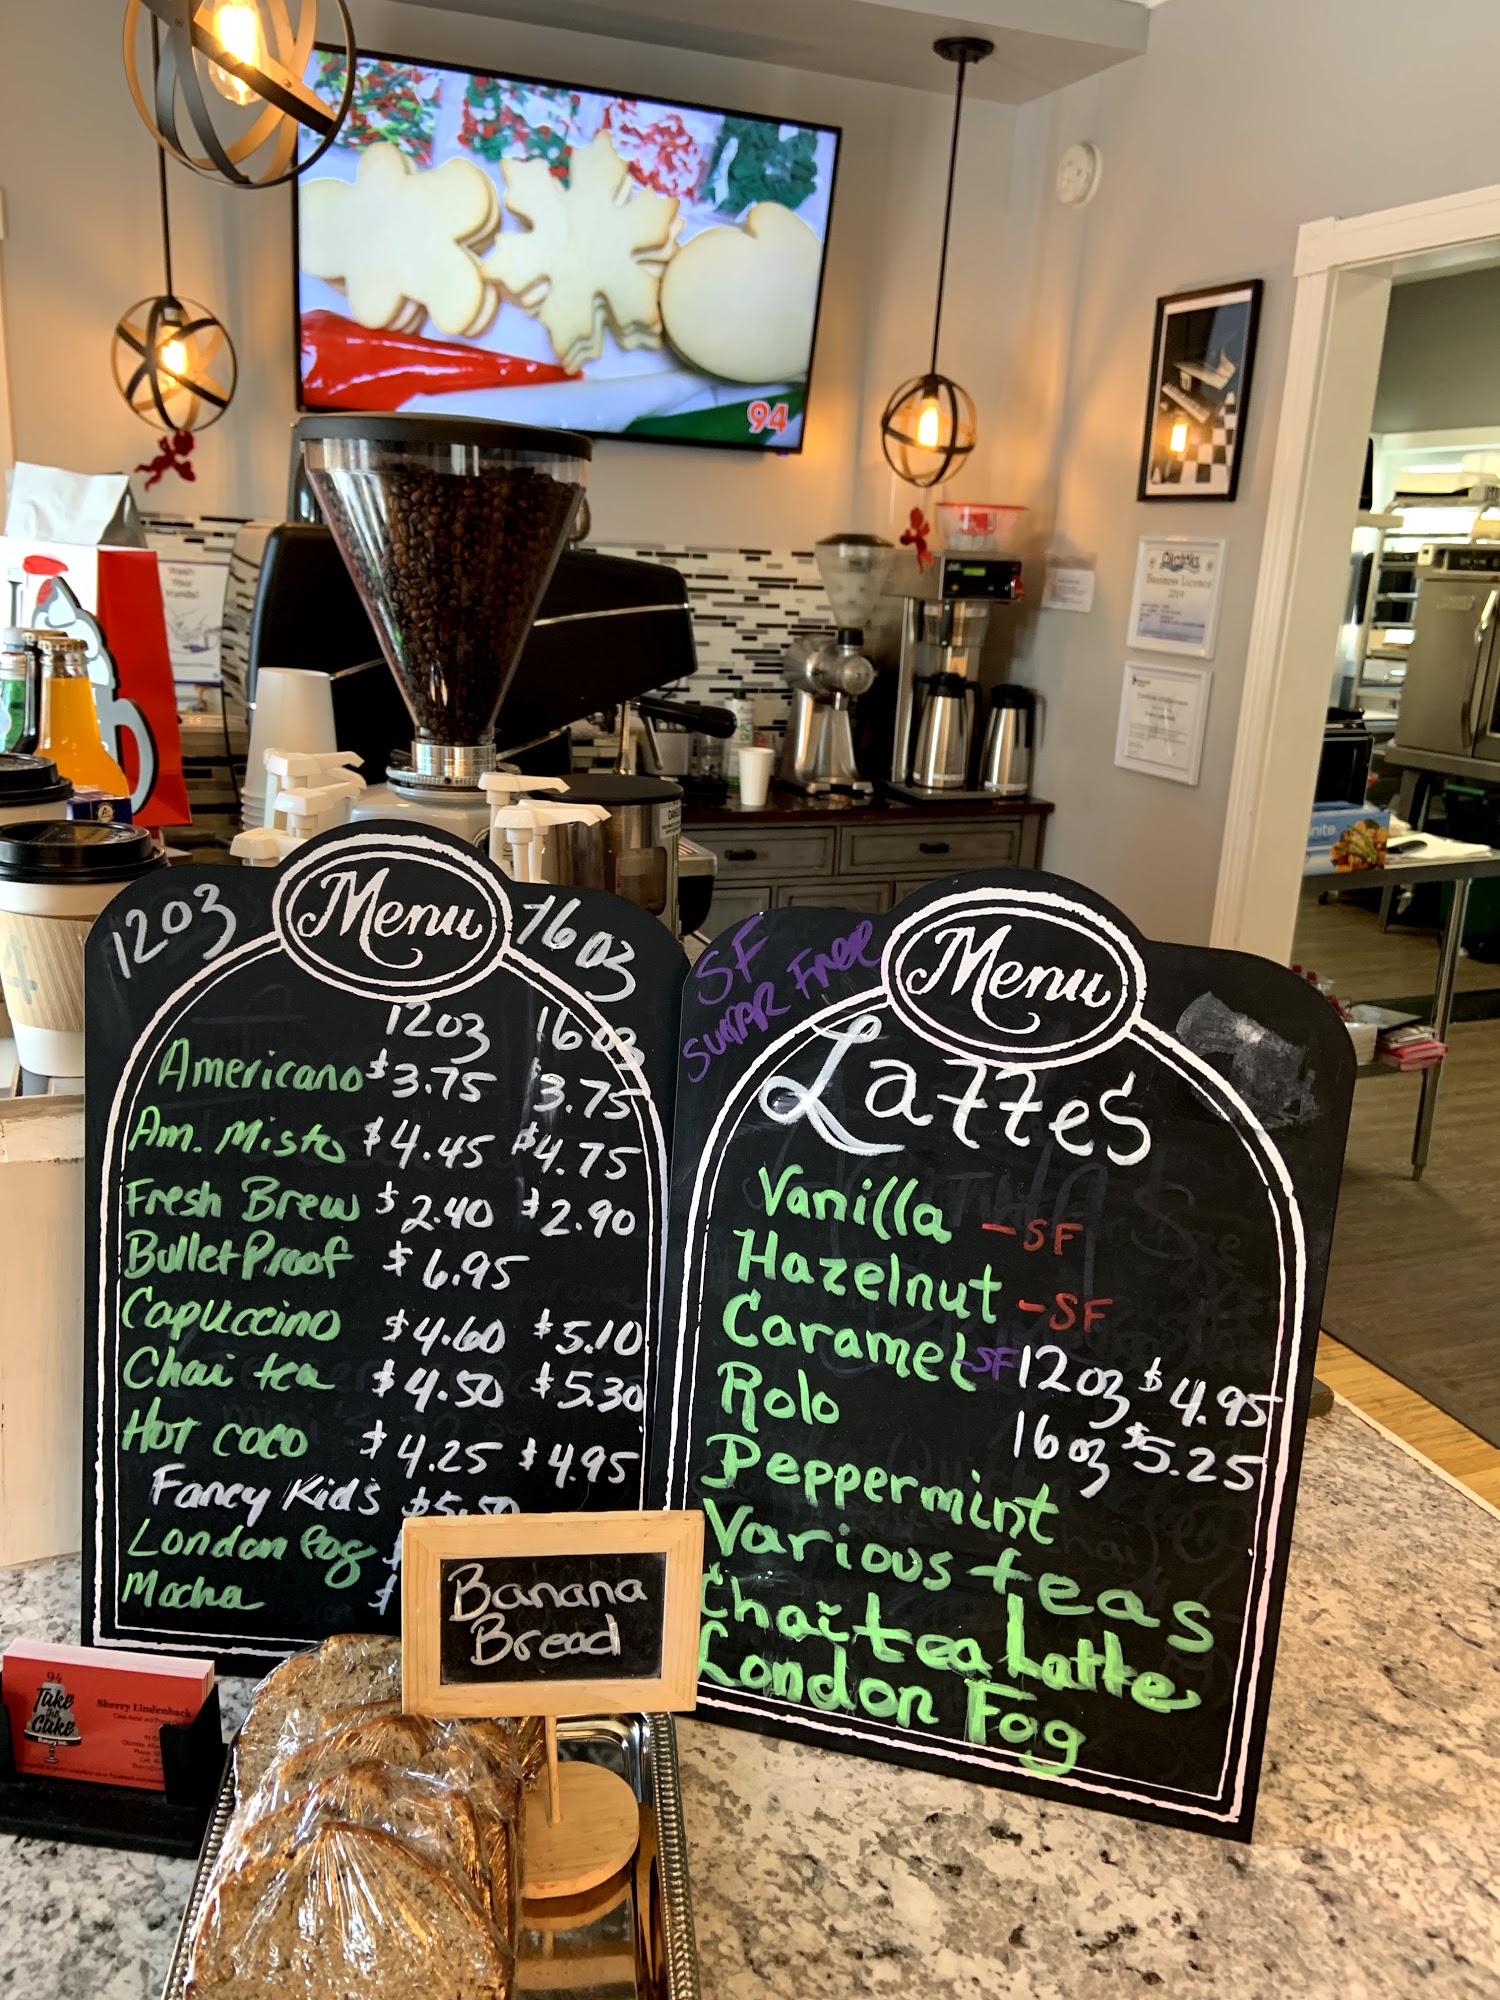 94
Wash
Your
Hands!
Business Licence
2019
Menu
12oz
16oz
12oz 16oz
Americano $3.75 $3.75
Am. Misto $4.45 $4.75
Fresh Brew $2.40 $2.90
BulletProof $6.95
Capuccino $4.60 $5.10
Chai tea $4.50 $5.30
Hot coco $4.25 $4.95
Fancy Kids $5.50
London fog $
Mocha $
Menu
SF
SUGAR FREE
Lattes
Vanilla -SF
Hazelnut -SF
Caramel -SF 12oz $4.95
Rolo 16oz $5.25
Peppermint
Various teas
Chai tea Latte
London Fog
Banana
Bread
94
Take
the
Cake
Bakery Inc.
Sherry Lindenback